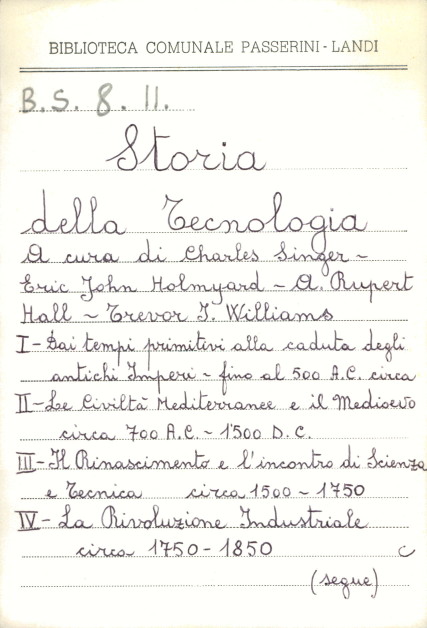 BIBLIOTECA COMUNALE PASSERINI - LANDI
B. S. 8. 11.
Storia
della Tecnologia
A cura di Charles Singer -
Eric John Holmyard - A. Rupert
Hall - Trevor I. Williams
I - Dai tempi primitivi alla caduta degli
antichi Imperi - fino al 500 A.C. circa
II - Le Civiltà Mediterranee e il Medioevo
circa 700 A.C. - 1500 D.C.
III - Il Rinascimento e l'incontro di Scienza
e Tecnica circa 1500 - 1750
IV - La Rivoluzione Industriale
circa 1750 - 1850 C
(segue)